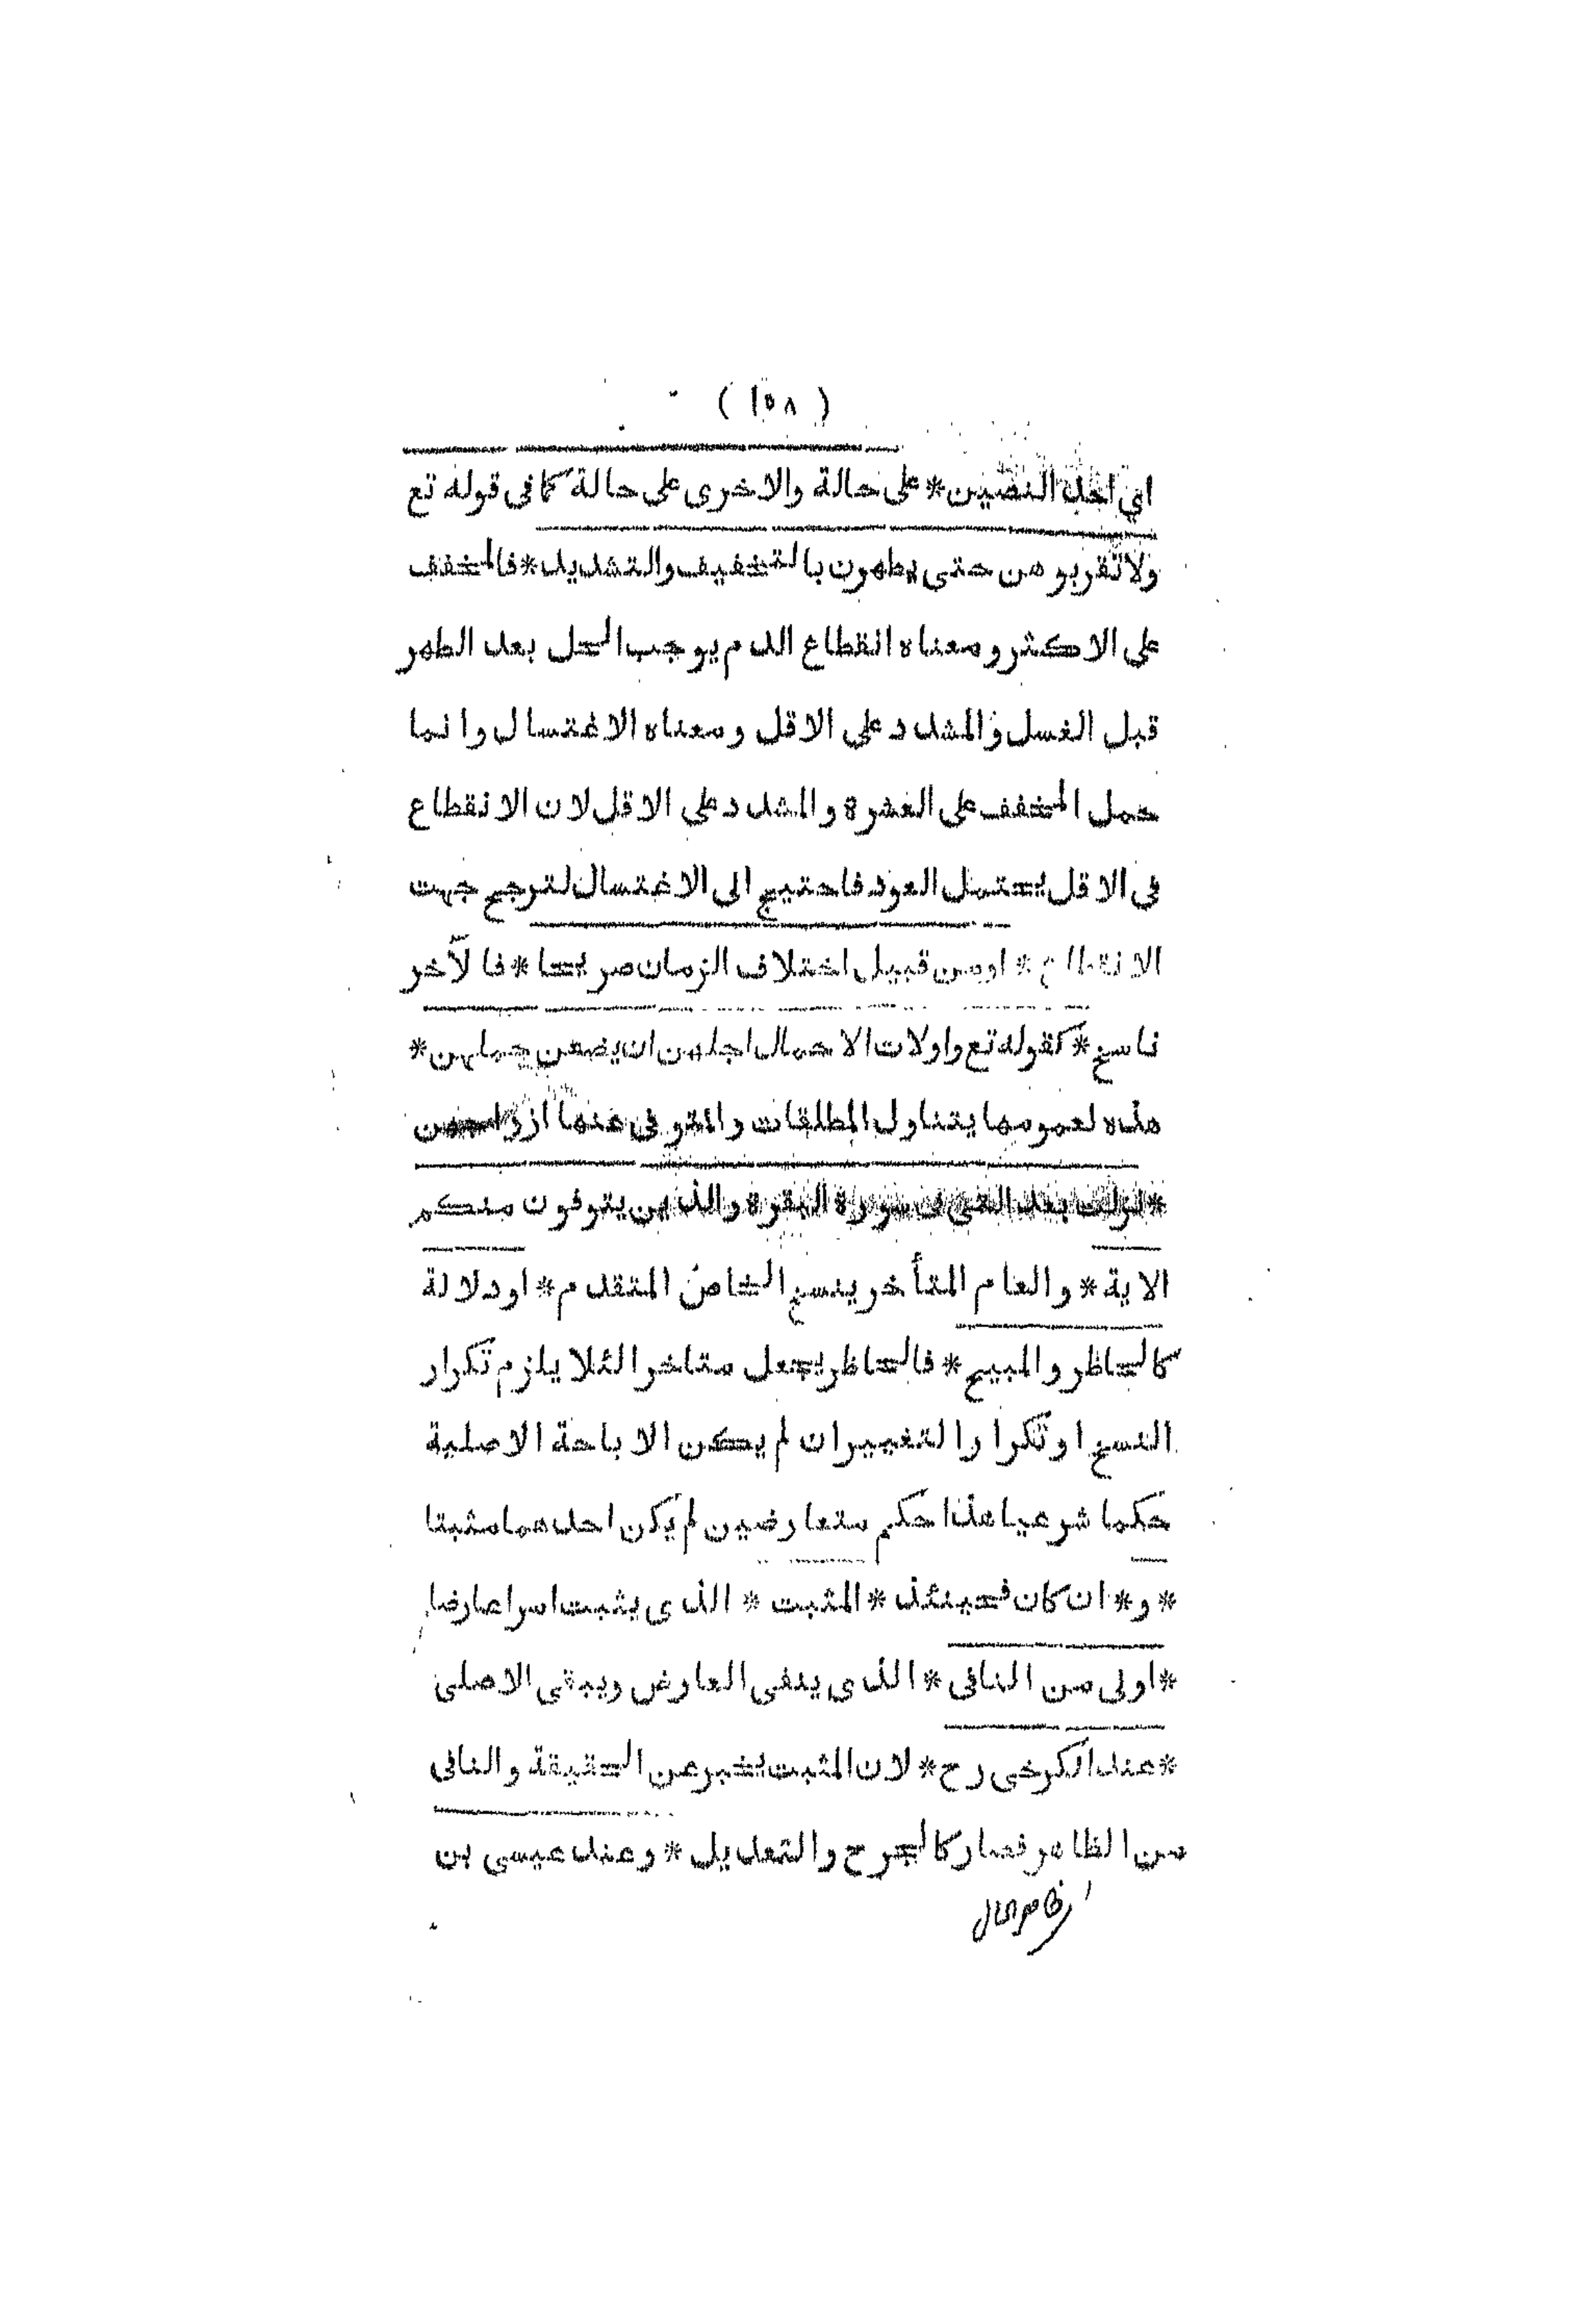 ( ١٥٨ )
اي احد النصين * على حالة والاخرى على حالة كما في قوله تع
ولا تقربوهن حتى يطهرن بالتخفيف والتشديد * فالمخفف
على الاكثر ومعناه انقطاع الدم يوجب الحل بعد الطهر
قبل الغسل والمشدد على الاقل ومعناه الاغتسال وانما
حمل المخفف على العشرة والمشدد على الاقل لان الانقطاع
في الاقل يحتمل العود فاحتيج الى الاغتسال لترجح جهت
الانقطاع * او من قبيل اختلاف الزمان صريحا * فالآخر
ناسخ * كقوله تع واولات الاحمال اجلهن ان يضعن حملهن *
هذه لعمومها يتناول المطلقات والمتوفى عنها ازواجهن
* نزلت بعد التي في سورة البقرة والذين يتوفون منكم
الاية * والعام المتأخر ينسخ الخاص المتقدم * او دلالة
كالحاظر والمبيح * فالحاظر يجعل متاخرا لئلا يلزم تكرار
النسخ او تكرار التغيير ان لم يكن الاباحة الاصلية
حكما شرعيا هذا حكم متعارضين لم يكن احدهما مثبتا
* و * ان كان فحينئذ * المثبت * الذي يثبت امرا عارضا
* اولى من النافي * الذي ينفى العارض ويبقى الاصلى
* عند الكرخى رح * لان المثبت يخبر عن الحقيقة والنافى
من الظاهر فصار كالجرح والتعديل * وعند عيسى بن
ظاهر الحال